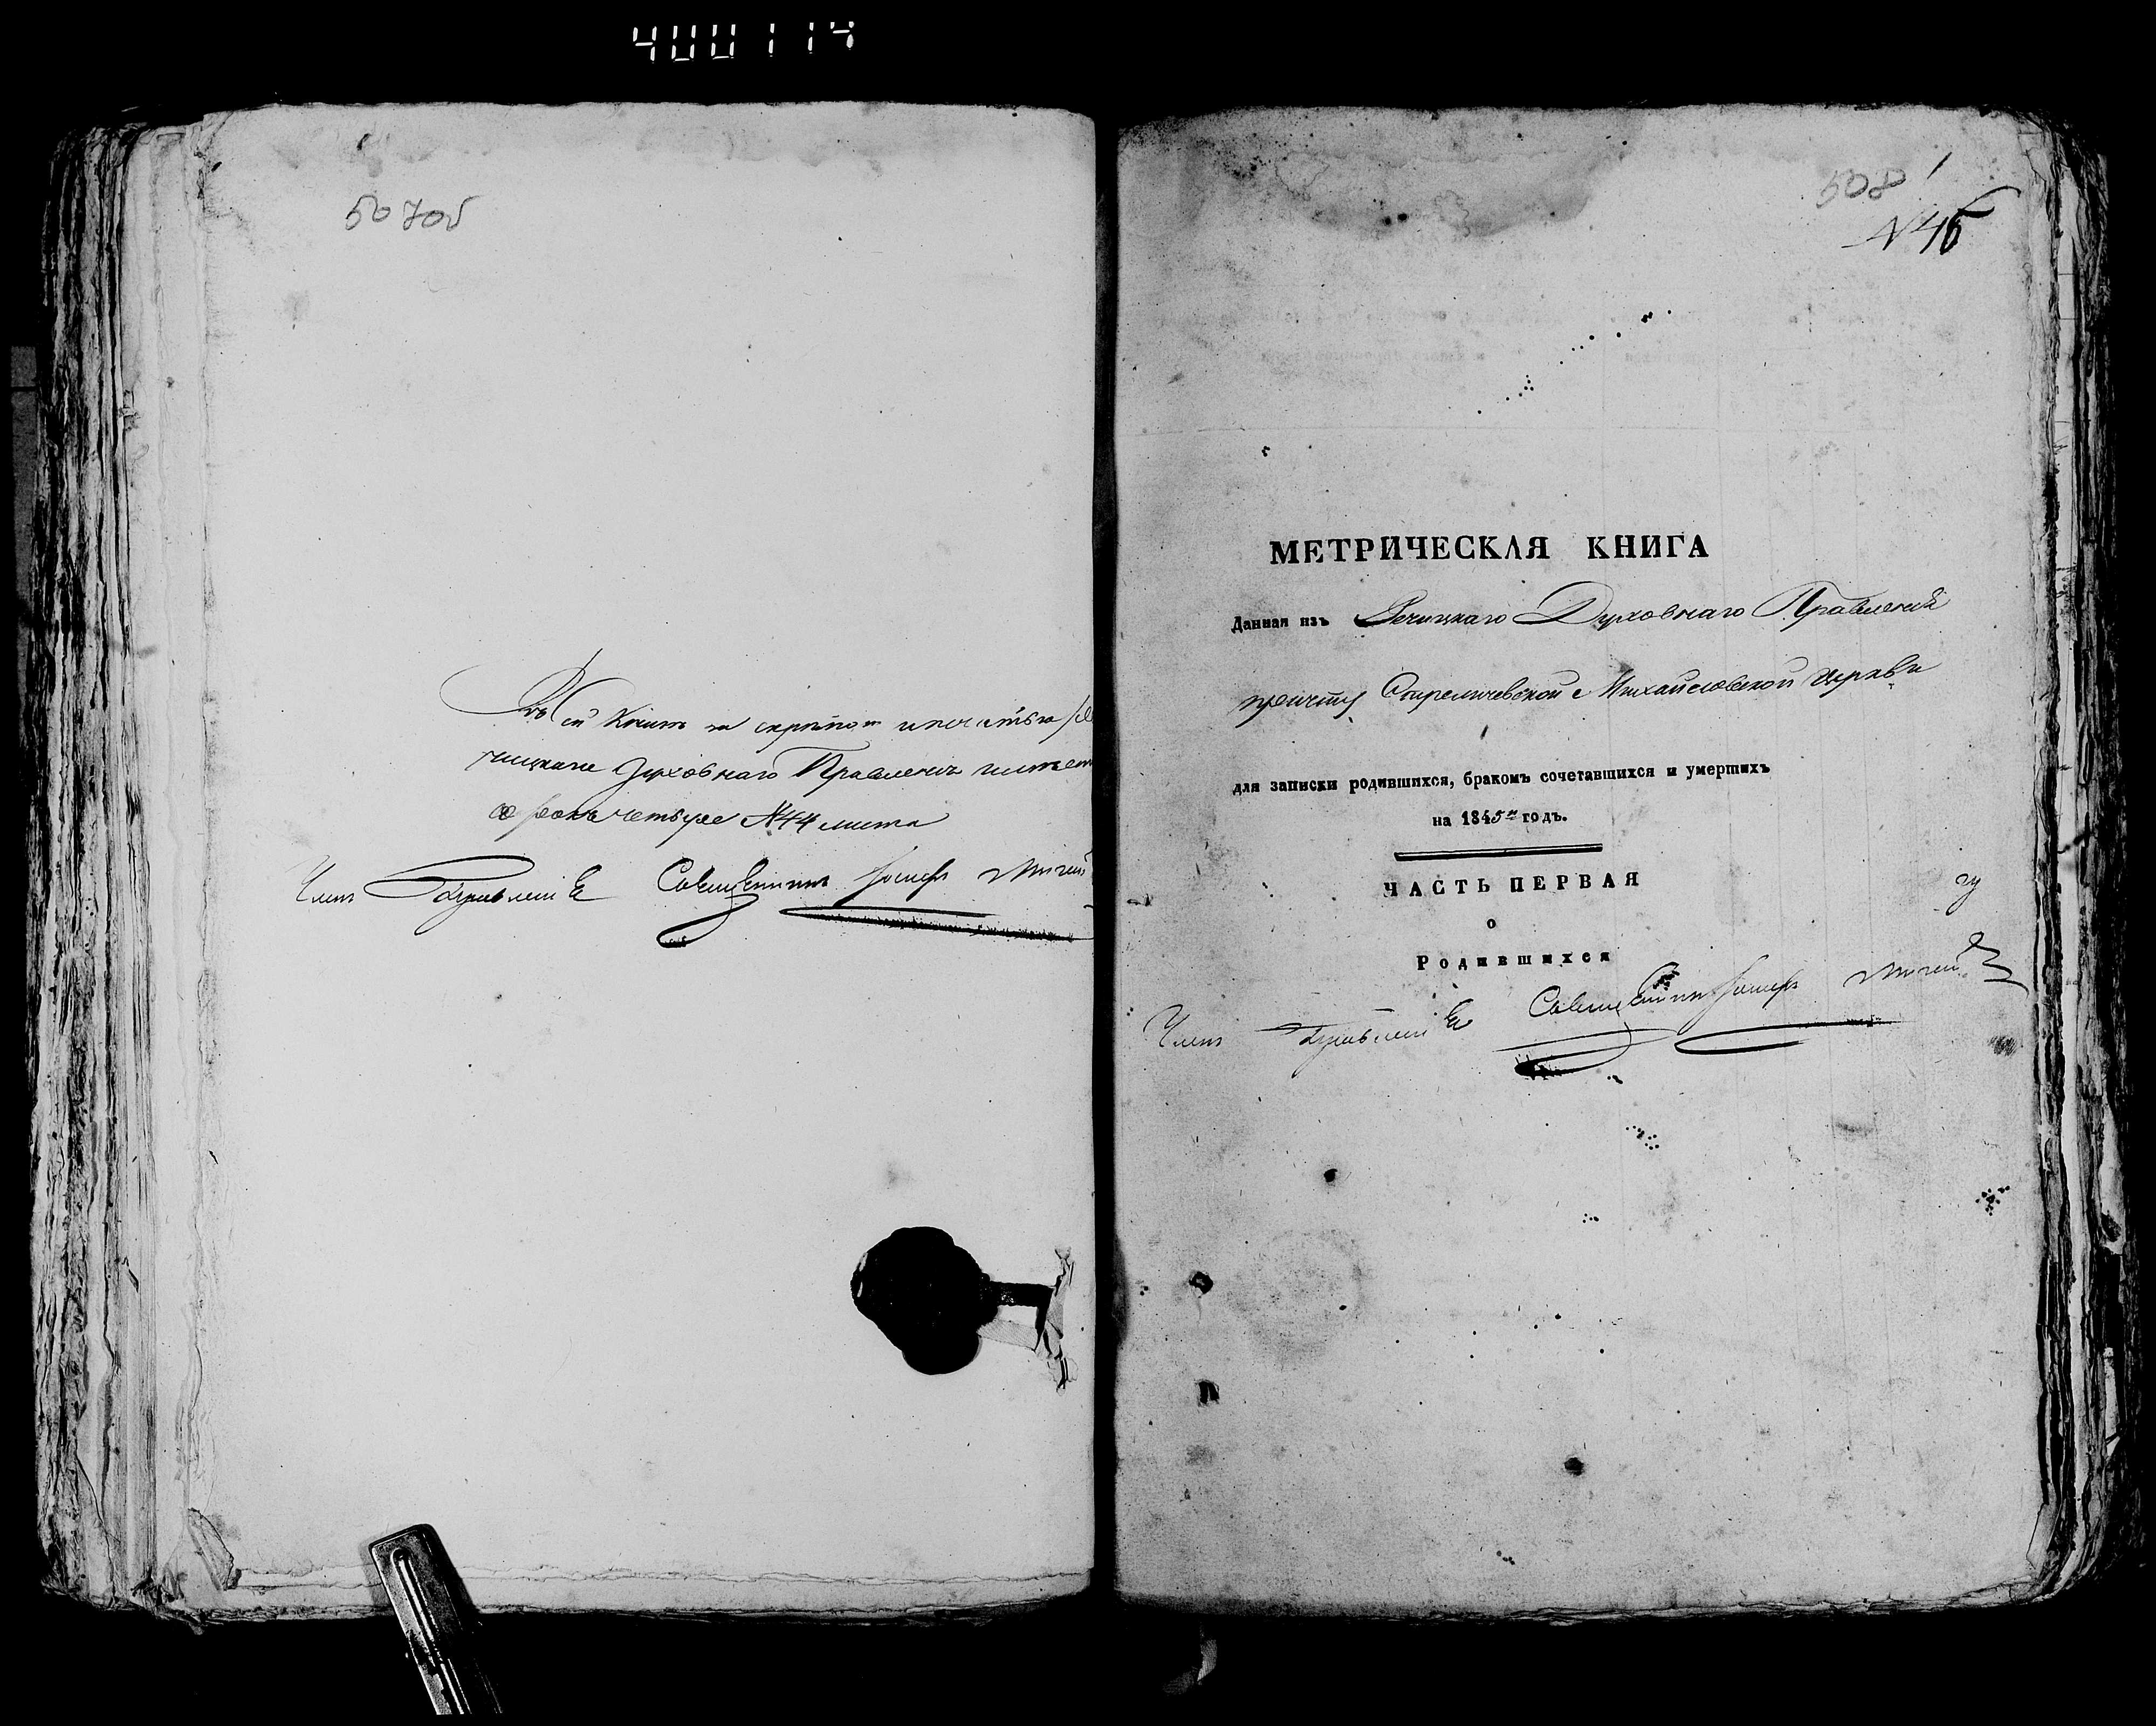 400114
507об
Въ сей Книге за скрепою и печатью Ре
чицкаго Духовнаго Правления
сорокъ четыре №44 листа
Членъ Правления Священникъ
508
№ 46
МЕТРИЧЕСКАЯ КНИГА
Данная изъ Речицкаго Духовнаго Правления
причту Михайловской церкви
для записки родившихся, бракомъ сочетавшихся и умершихъ
на 1845й годъ.
ЧАСТЬ ПЕРВАЯ
о
Родившихся
Членъ Правления Священникъ